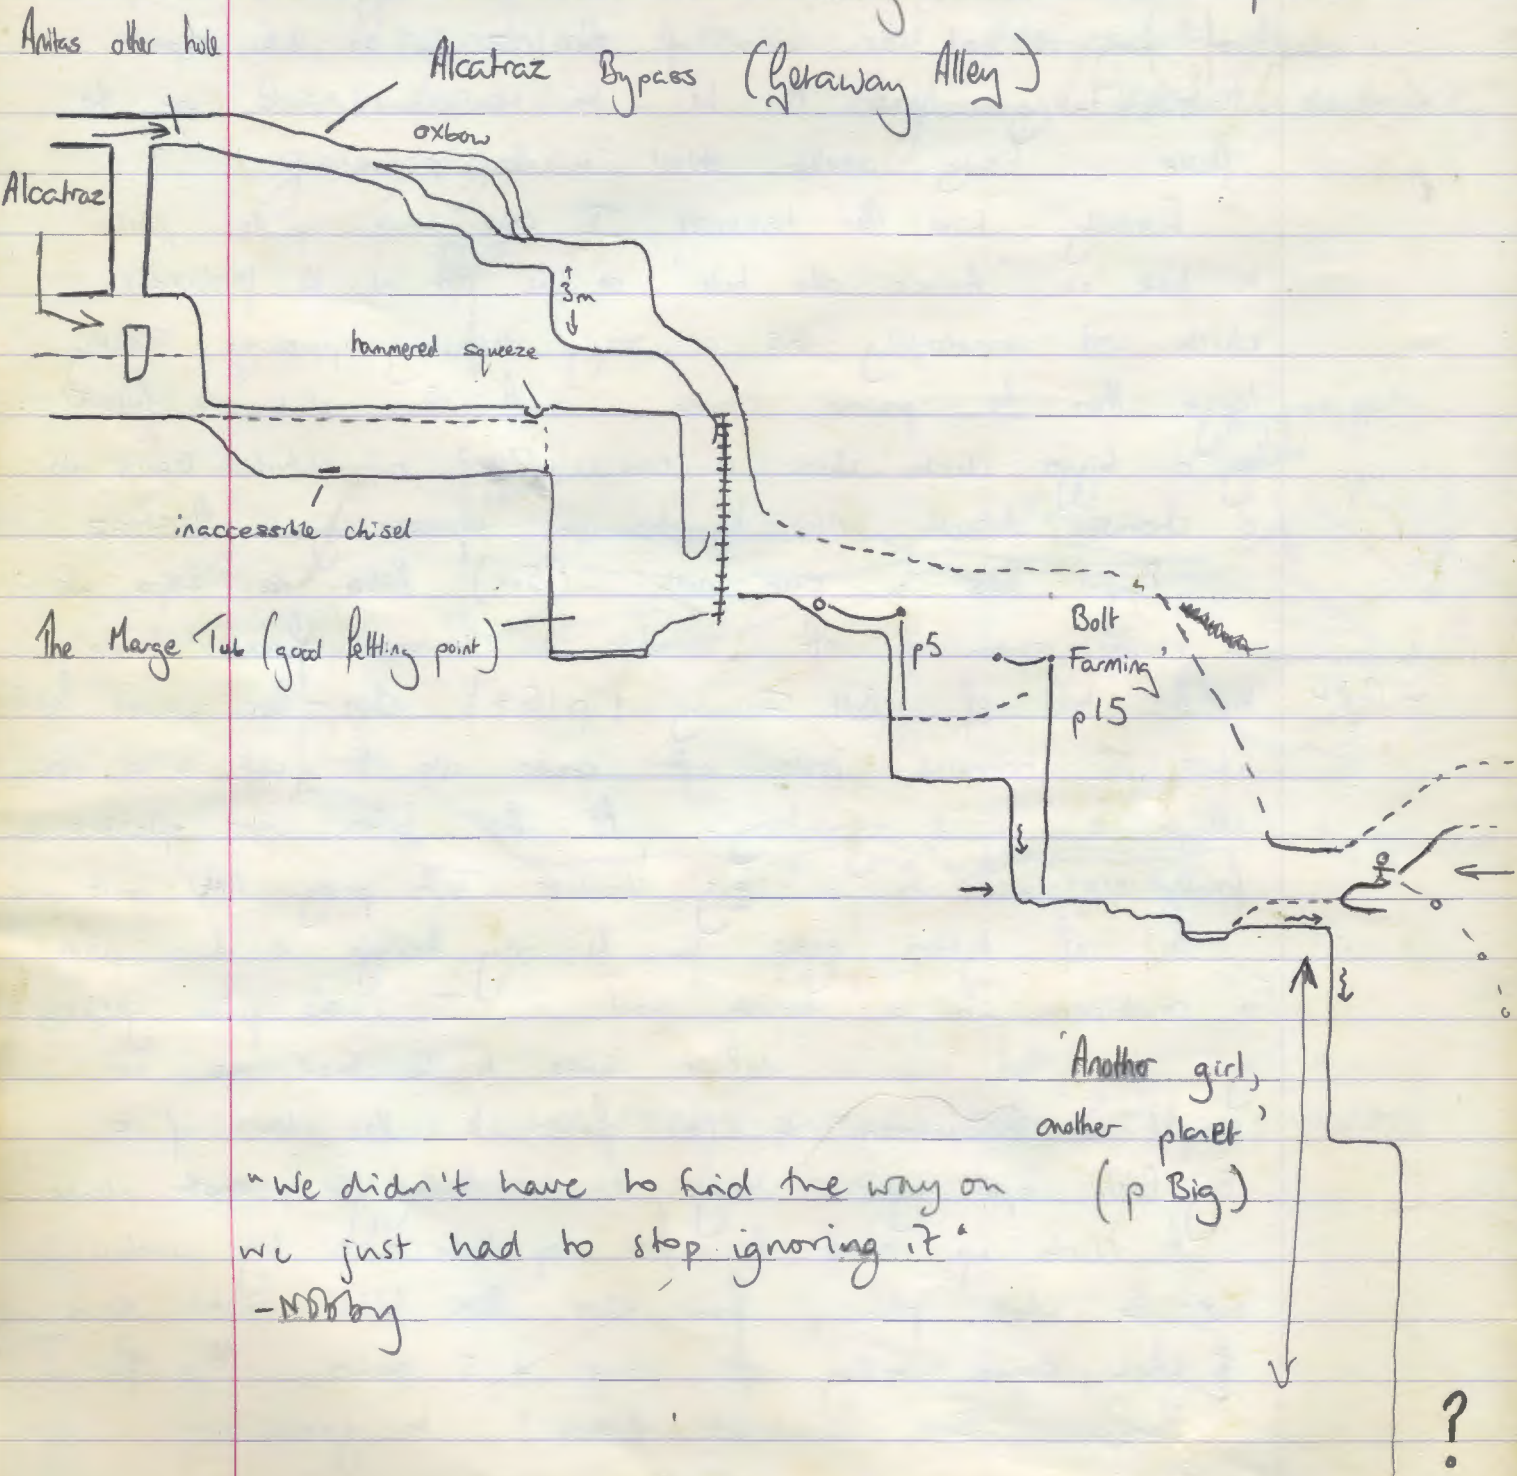 Anitas other hole
Alcatraz Bypass (Getaway Alley)
oxbow
Alcatraz
3m
hammered squeeze
inaccessible chisel
The Marge Tub (good fettling point)
p5
Bolt
Farming'
p15
'Another girl,
another planet'
(p Big)
"We didn't have to find the way on
we just had to stop ignoring it"
-Nobby
?